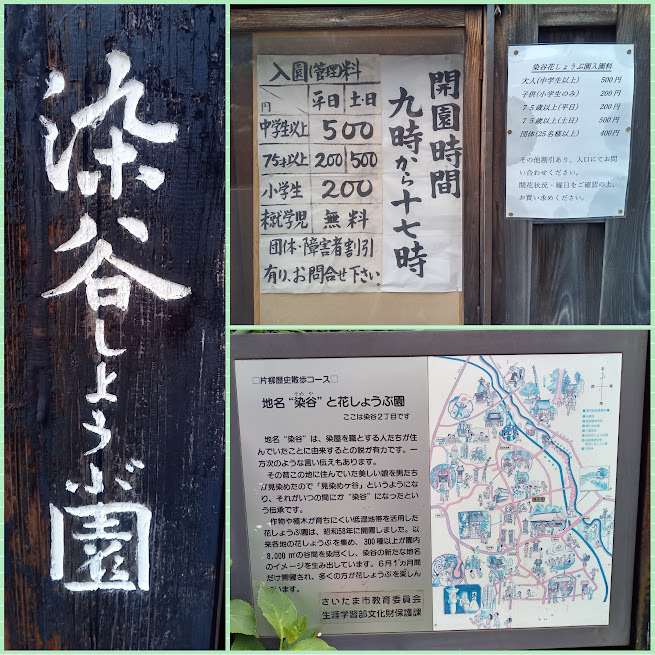 染谷しょうぶ園
入園(管理)料
円 平日 土・日
中学生以上 500
75才以上 200 500
小学生 200
未就学児 無料
団体・障害者割引
有り、お問合せ下さい
開園時間
九時から十七時
染谷花しょうぶ園入園料
大人(中学生以上) 500円
子供(小学生のみ) 200円
75歳以上(平日) 200円
75歳以上(土日) 500円
団体(25名様以上) 400円
その他割引あり、入口にてお問
い合わせください。
開花状況・曜日をご確認の上、
お買い求めください。
□片柳歴史散歩コース□
地名“染谷”と花しょうぶ園
ここは染谷2丁目です
地名“染谷”は、染屋を職とする人たちが住
んでいたことに由来するとの説が有力です。一
方次のような言い伝えもあります。
その昔この地に住んでいた美しい娘を男たち
が見染めたので「見染めケ谷」というようにな
り、それがいつの間にか“染谷”になったとい
う伝承です。
作物や植木が育ちにくい低湿地帯を活用した
花しょうぶ園は、昭和58年に開園しました。以
来各地の花しょうぶを集め、300種以上が園内
8,000㎡の谷間を染尽くし、染谷の新たな地名
のイメージを生み出しています。6月1カ月間
だけ開園され、多くの方が花しょうぶを楽しん
でいます。
さいたま市教育委員会
生涯学習部文化財保護課